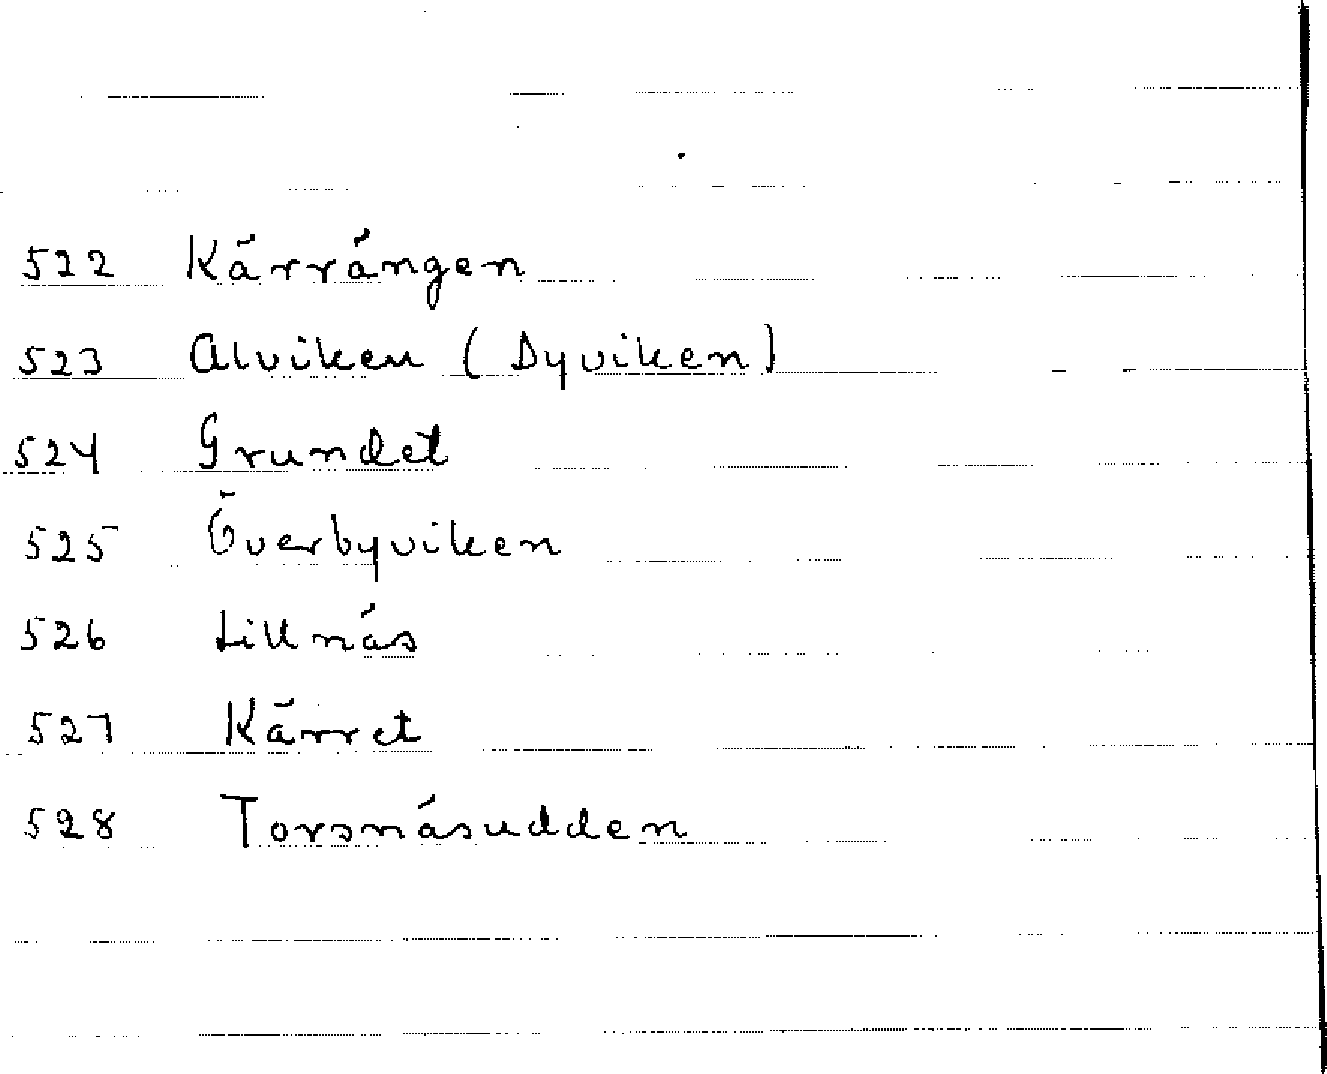 522 Kärrängen
523 Alviken (Dyviken)
524 Grundet
525 Överbyviken
526 Lillnäs
527 Kärret
528 Torsnäsudden